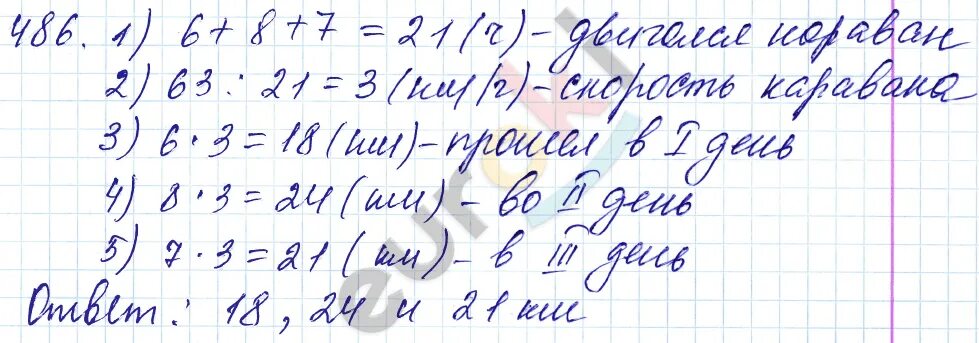 486. 1) 6 + 8 + 7 = 21 (ч) – двигался караван
2) 63 : 21 = 3 (км/ч) – скорость каравана
3) 6 · 3 = 18 (км) – прошел в I день
4) 8 · 3 = 24 (км) – во II день
5) 7 · 3 = 21 (км) – в III день
Ответ: 18, 24 и 21 км
euroki